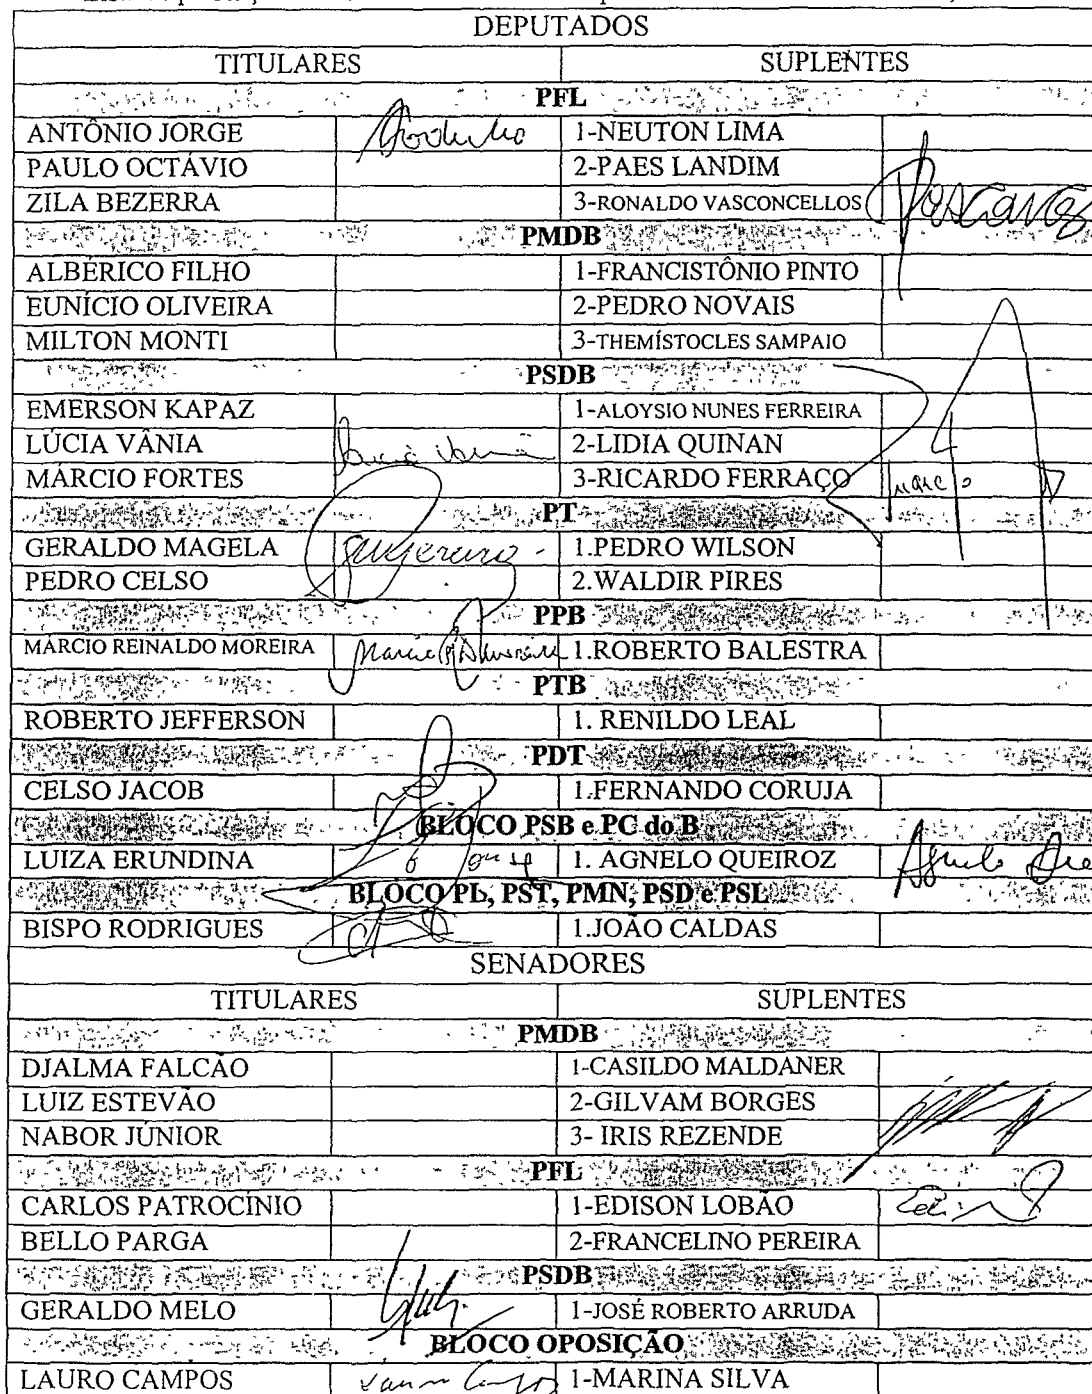 DEPUTADOS
TITULARES SUPLENTES
PFL
ANTÔNIO JORGE 1-NEUTON LIMA
PAULO OCTÁVIO 2-PAES LANDIM
ZILA BEZERRA 3-RONALDO VASCONCELLOS
PMDB
ALBÉRICO FILHO 1-FRANCISTÔNIO PINTO
EUNÍCIO OLIVEIRA 2-PEDRO NOVAIS
MILTON MONTI 3-THEMÍSTOCLES SAMPAIO
PSDB
EMERSON KAPAZ 1-ALOYSIO NUNES FERREIRA
LÚCIA VÂNIA Lucia Vania 2-LIDIA QUINAN
MÁRCIO FORTES 3-RICARDO FERRAÇO
PT
GERALDO MAGELA 1.PEDRO WILSON
PEDRO CELSO 2.WALDIR PIRES
PPB
MÁRCIO REINALDO MOREIRA 1.ROBERTO BALESTRA
PTB
ROBERTO JEFFERSON 1. RENILDO LEAL
PDT
CELSO JACOB 1.FERNANDO CORUJA
BLOCO PSB e PC do B
LUIZA ERUNDINA 1. AGNELO QUEIROZ Agnelo
BLOCO PL, PST, PMN, PSD e PSL
BISPO RODRIGUES 1.JOÃO CALDAS
SENADORES
TITULARES SUPLENTES
PMDB
DJALMA FALCÃO 1-CASILDO MALDANER
LUIZ ESTEVÃO 2-GILVAM BORGES
NABOR JÚNIOR 3- IRIS REZENDE
PFL
CARLOS PATROCÍNIO 1-EDISON LOBÃO
BELLO PARGA 2-FRANCELINO PEREIRA
PSDB
GERALDO MELO 1-JOSÉ ROBERTO ARRUDA
BLOCO OPOSIÇÃO
LAURO CAMPOS Lauro Campos 1-MARINA SILVA